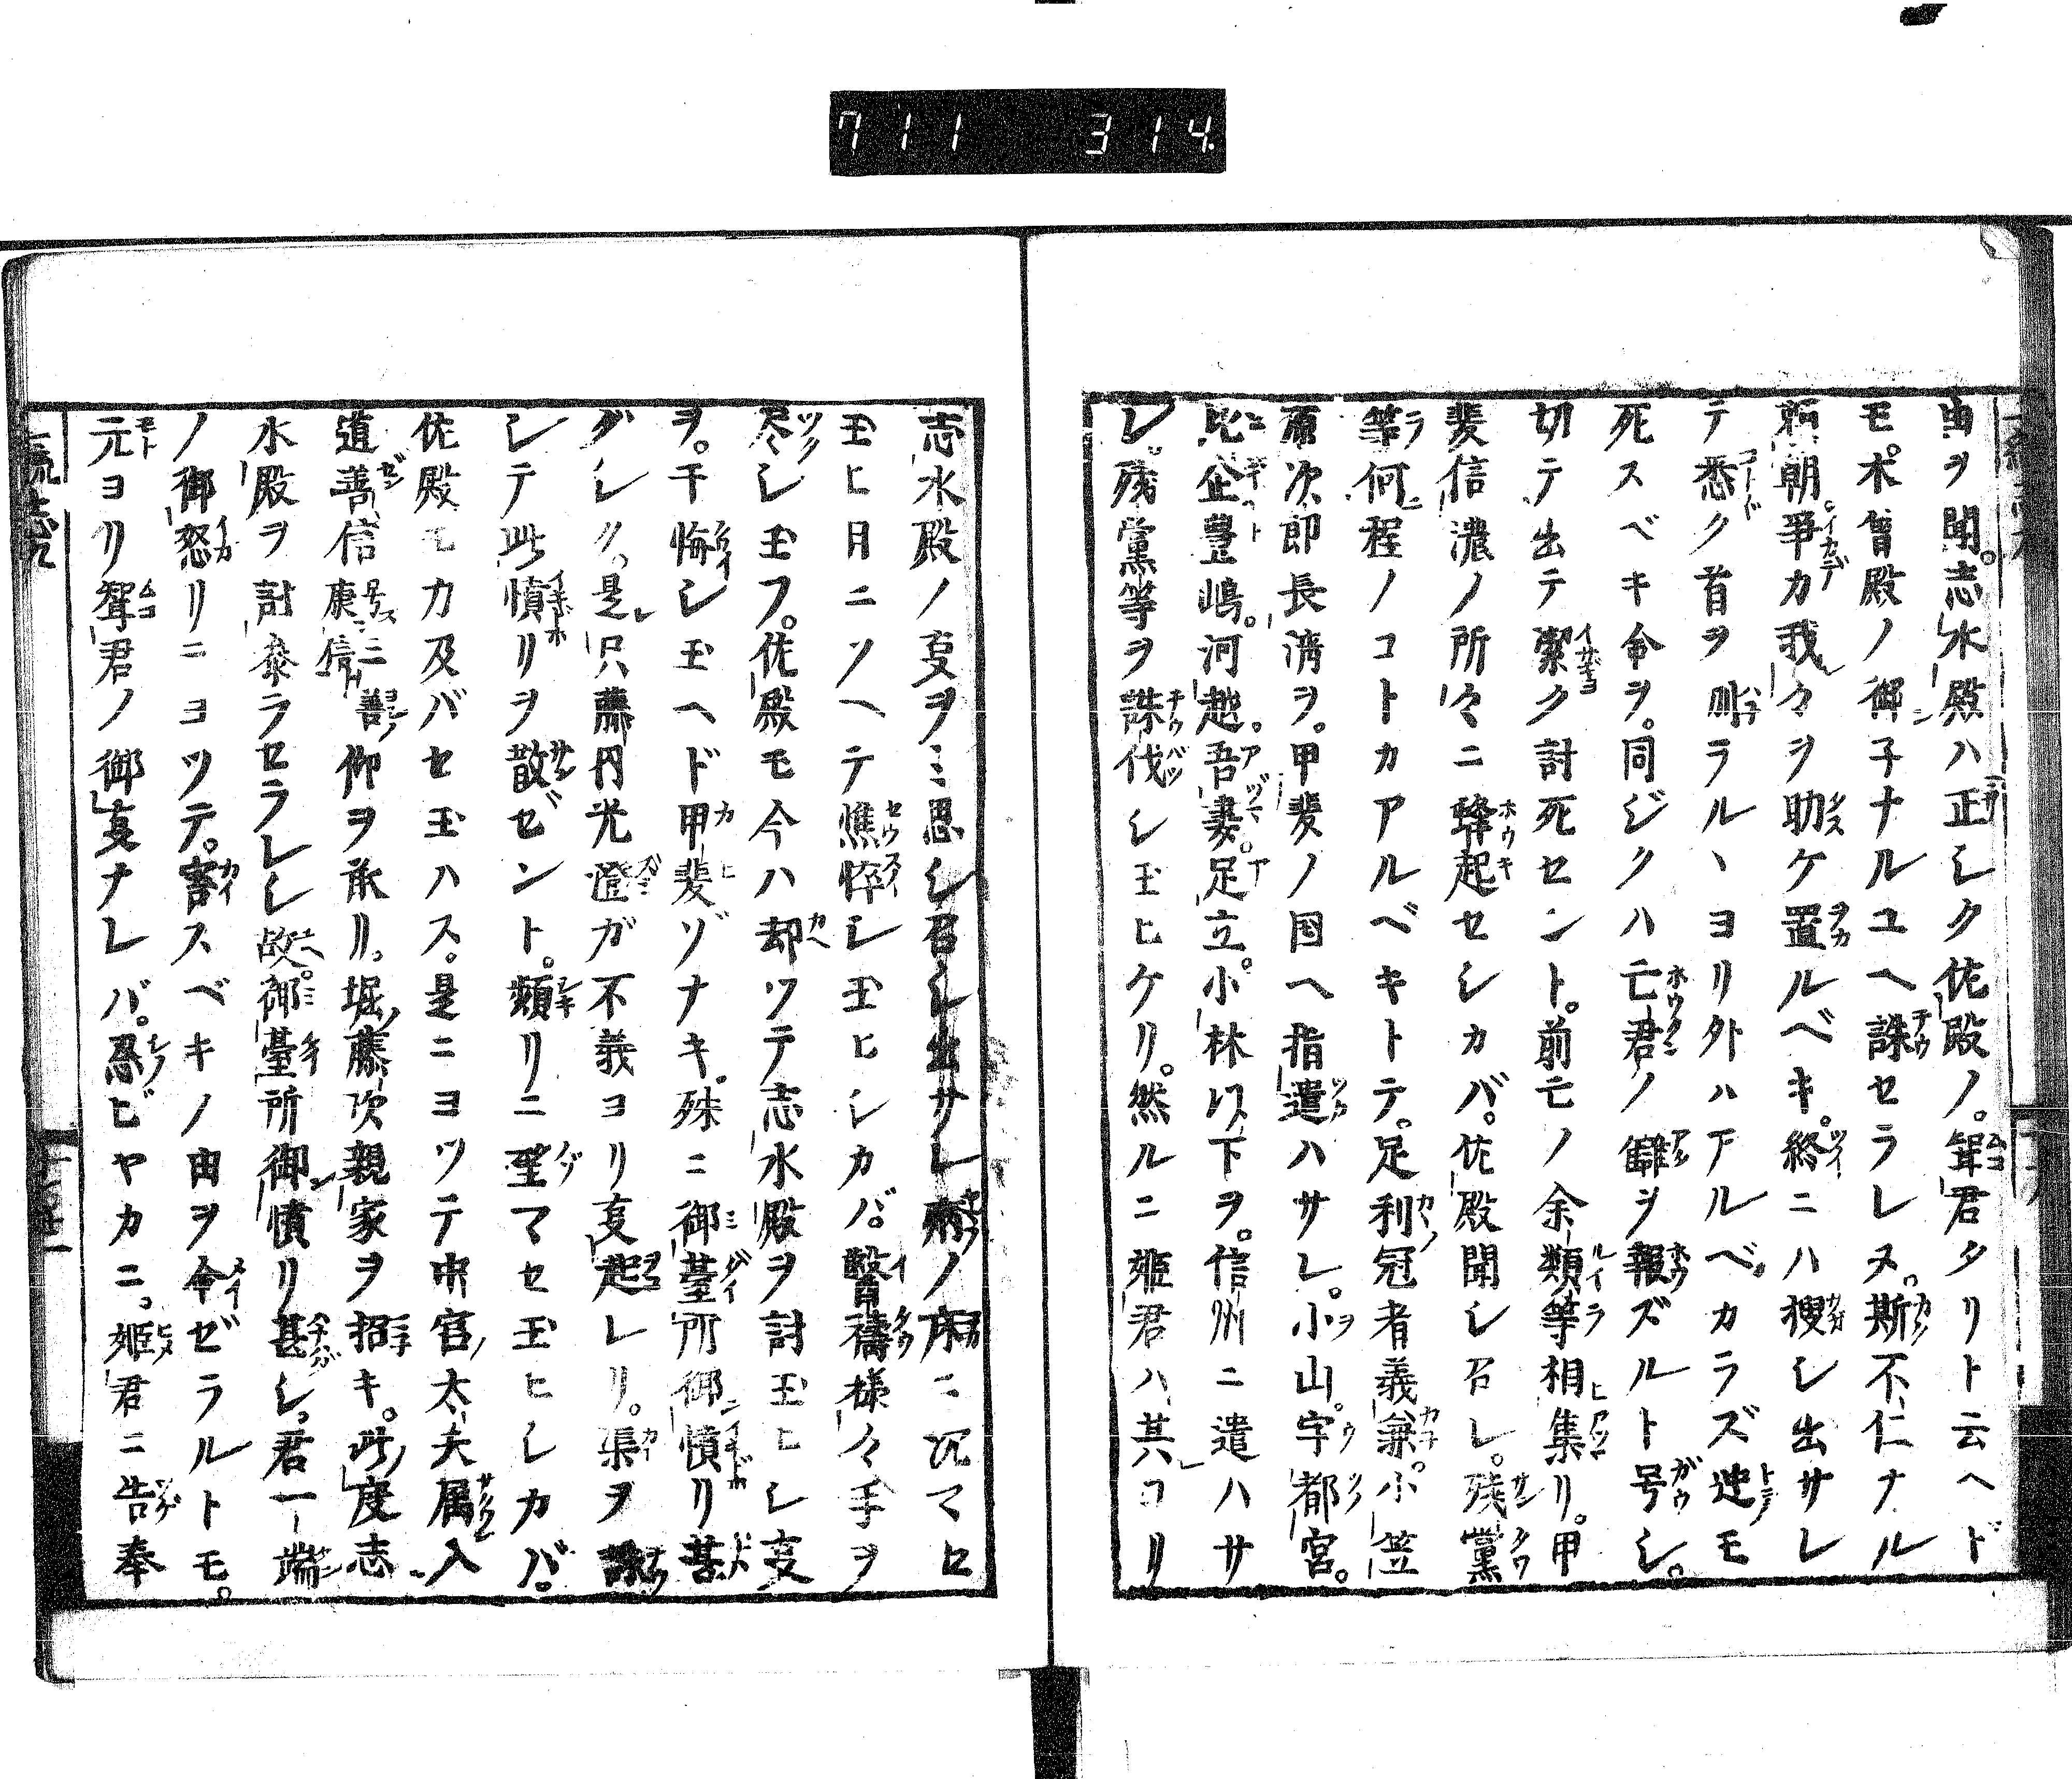 711 314
由ヲ聞。志水殿ハ正シク佐殿ノ。聟君タリト云ヘド
モ。木曽殿ノ御子ナルユヘ誅セラレヌ。斯不仁ナル
頼朝。爭カ我々ヲ助ケ置ルベキ。終ニハ捜シ出サレ
テ悉ク首ヲ刎ラルヽヨリ外ハアルベカラズ迚モ
死スベキ命ヲ。同ジクハ亡君ノ讎ヲ報ズルト号シ。
切テ出テ潔ク討死セント。前亡ノ余類等相集リ。甲
斐信濃ノ所々ニ蜂起セシカバ。佐殿聞シ召レ。残黨
等何程ノコトカアルベキトテ。足利冠者義兼。小笠
原次郎長清ヲ。甲斐ノ国ヘ指遣ハサレ。小山。宇都宮。
比企豊嶋。河越。吾妻。足立。小林以下ヲ。信州ニ遣ハサ
レ。残黨等ヲ誅伐シ玉ヒケリ。然ルニ姫君ハ其コリ
志水殿ノ叓ヲミ思シ召シ出サレ病ノ床ニ沉マセ
玉ヒ日ニソヘテ憔悴シ玉ヒシカバ。醫禱様々手ヲ
尽シ玉フ。佐殿モ今ハ却ツテ志水殿ヲ討玉ヒシ叓
ヲ。千悔シ玉ヘド甲斐ゾナキ。殊ニ御臺所御憤リ甚
ダシク。是只藤内光澄ガ不義ヨリ叓起レリ。渠ヲ誅
シテ此憤リヲ散ゼント。頻リニ望マセ玉ヒシカバ。
佐殿モカ及バセ玉ハス。是ニヨツテ中宮太夫属入
道善信康信号ス二善仰ヲ承リ。堀藤次親家ヲ招キ。此度志
水殿ヲ討泰ラセラレシ故。御臺所御憤リ甚シ。君一端
ノ御怒リニヨツテ。害スベキノ由ヲ命ゼラルトモ。
元ヨリ聟君ノ御叓ナレバ。忍ビヤカニ。姫君ニ告奉